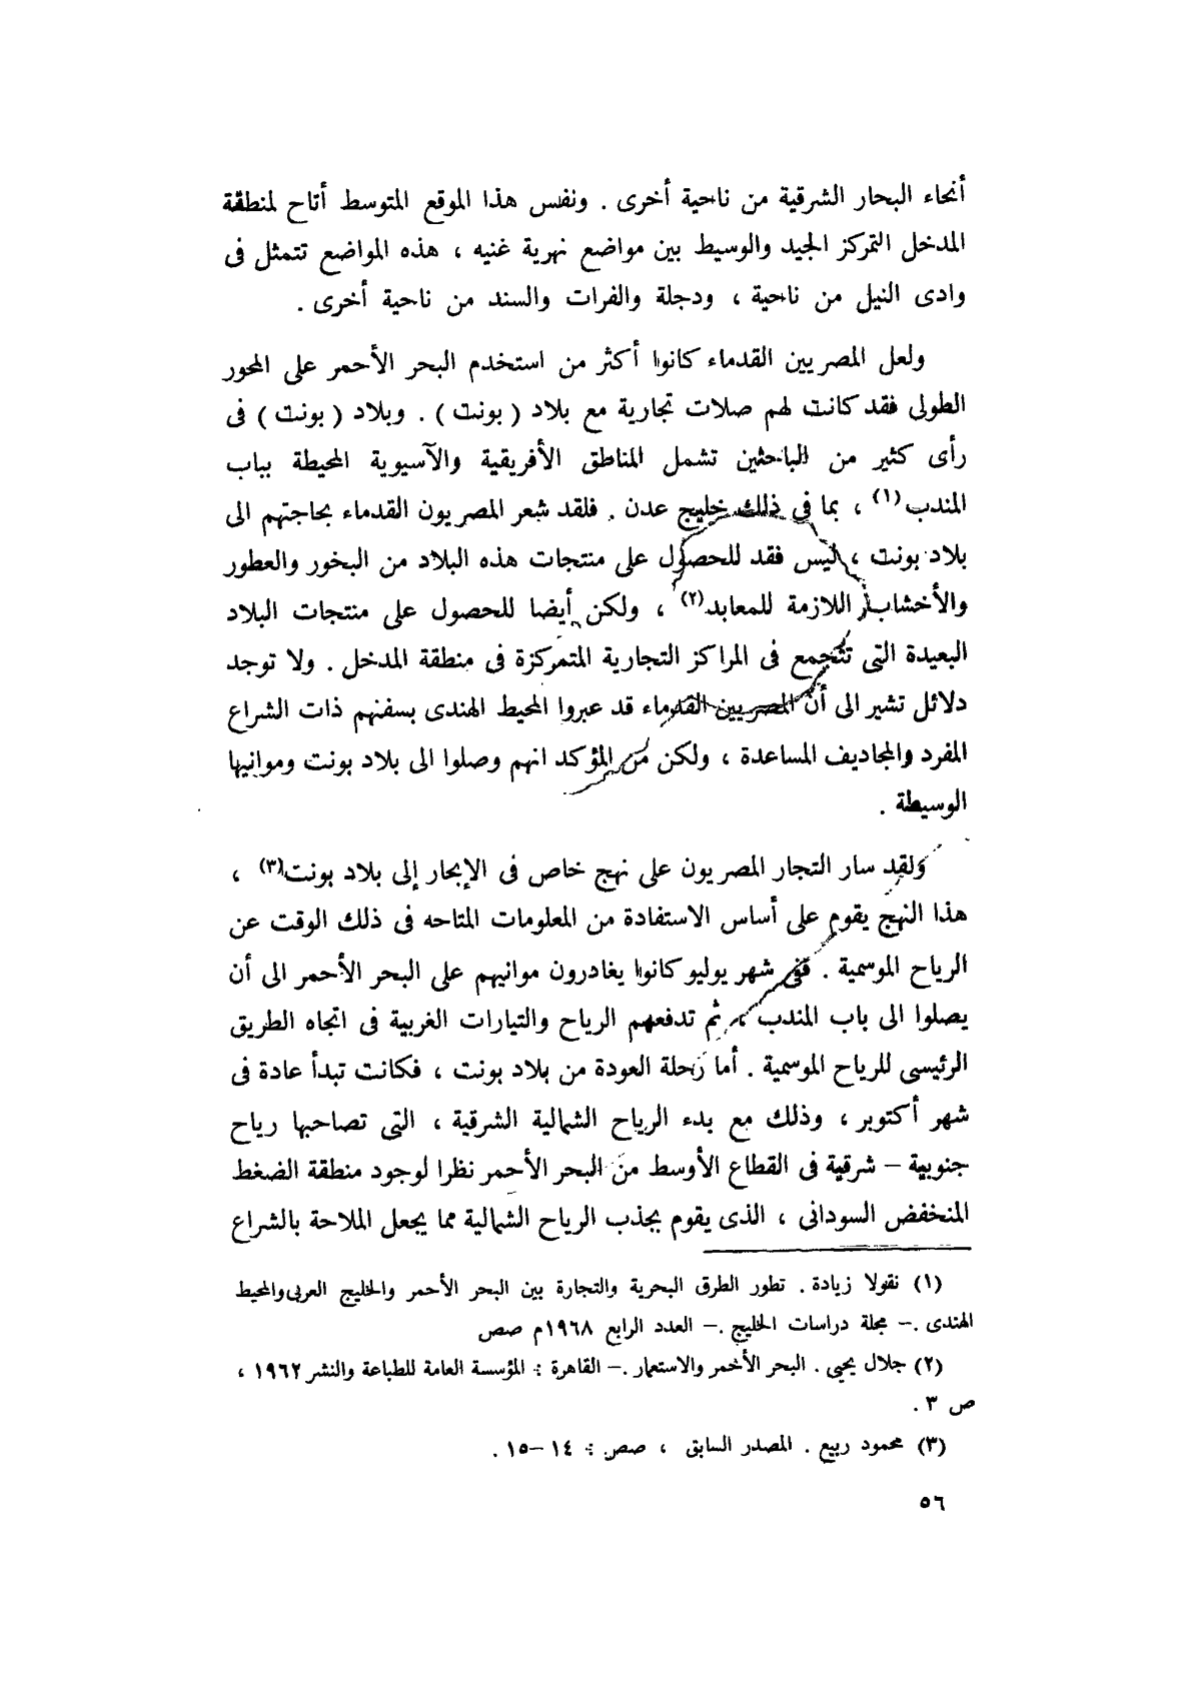 أنحاء البحار الشرقية من ناحية أخرى . ونفس هذا الموقع المتوسط أتاح لمنطقة
المدخل التمركز الجيد والوسيط بين مواضع نهرية غنيه ، هذه المواضع تتمثل فى
وادى النيل من ناحية ، ودجلة والفرات والسند من ناحية أخرى .
ولعل المصريين القدماء كانوا أكثر من استخدم البحر الأحمر على المحور
الطولى فقد كانت لهم صلات تجارية مع بلاد ( بونت ) . وبلاد ( بونت ) فى
رأى كثير من الباحثين تشمل المناطق الأفريقية والآسيوية المحيطة بباب
المندب(١) ، بما فى ذلك خليج عدن . فلقد شعر المصريون القدماء بحاجتهم الى
بلاد بونت ، ليس فقد للحصول على منتجات هذه البلاد من البخور والعطور
والأخشاب اللازمة للمعابد(٢) ، ولكن أيضا للحصول على منتجات البلاد
البعيدة التى تتجمع فى المراكز التجارية المتمركزة فى منطقة المدخل . ولا توجد
دلائل تشير الى أن المصريين القدماء قد عبروا المحيط الهندى بسفنهم ذات الشراع
المفرد والمجاديف المساعدة ، ولكن من المؤكد انهم وصلوا الى بلاد بونت وموانيها
الوسيطة .
ولقد سار التجار المصريون على نهج خاص فى الإبحار إلى بلاد بونت(٣) ،
هذا النهج يقوم على أساس الاستفادة من المعلومات المتاحه فى ذلك الوقت عن
الرياح الموسمية . ففى شهر يوليو كانوا يغادرون موانيهم على البحر الأحمر الى أن
يصلوا الى باب المندب ، ثم تدفعهم الرياح والتيارات الغربية فى اتجاه الطريق
الرئيسى للرياح الموسمية . أما رحلة العودة من بلاد بونت ، فكانت تبدأ عادة فى
شهر أكتوبر ، وذلك مع بدء الرياح الشمالية الشرقية ، التى تصاحبها رياح
جنوبية – شرقية فى القطاع الأوسط من البحر الأحمر نظرا لوجود منطقة الضغط
المنخفض السودانى ، الذى يقوم بجذب الرياح الشمالية مما يجعل الملاحة بالشراع
(١) نقولا زيادة . تطور الطرق البحرية والتجارة بين البحر الأحمر والخليج العربى والمحيط
الهندى .– مجلة دراسات الخليج .– العدد الرابع ١٩٦٨م صص
(٢) جلال يحيى . البحر الأحمر والاستعمار .– القاهرة : المؤسسة العامة للطباعة والنشر ١٩٦٢ ،
ص ٣ .
(٣) محمود ربيع . المصدر السابق ، صص : ١٤ –١٥ .
٥٦